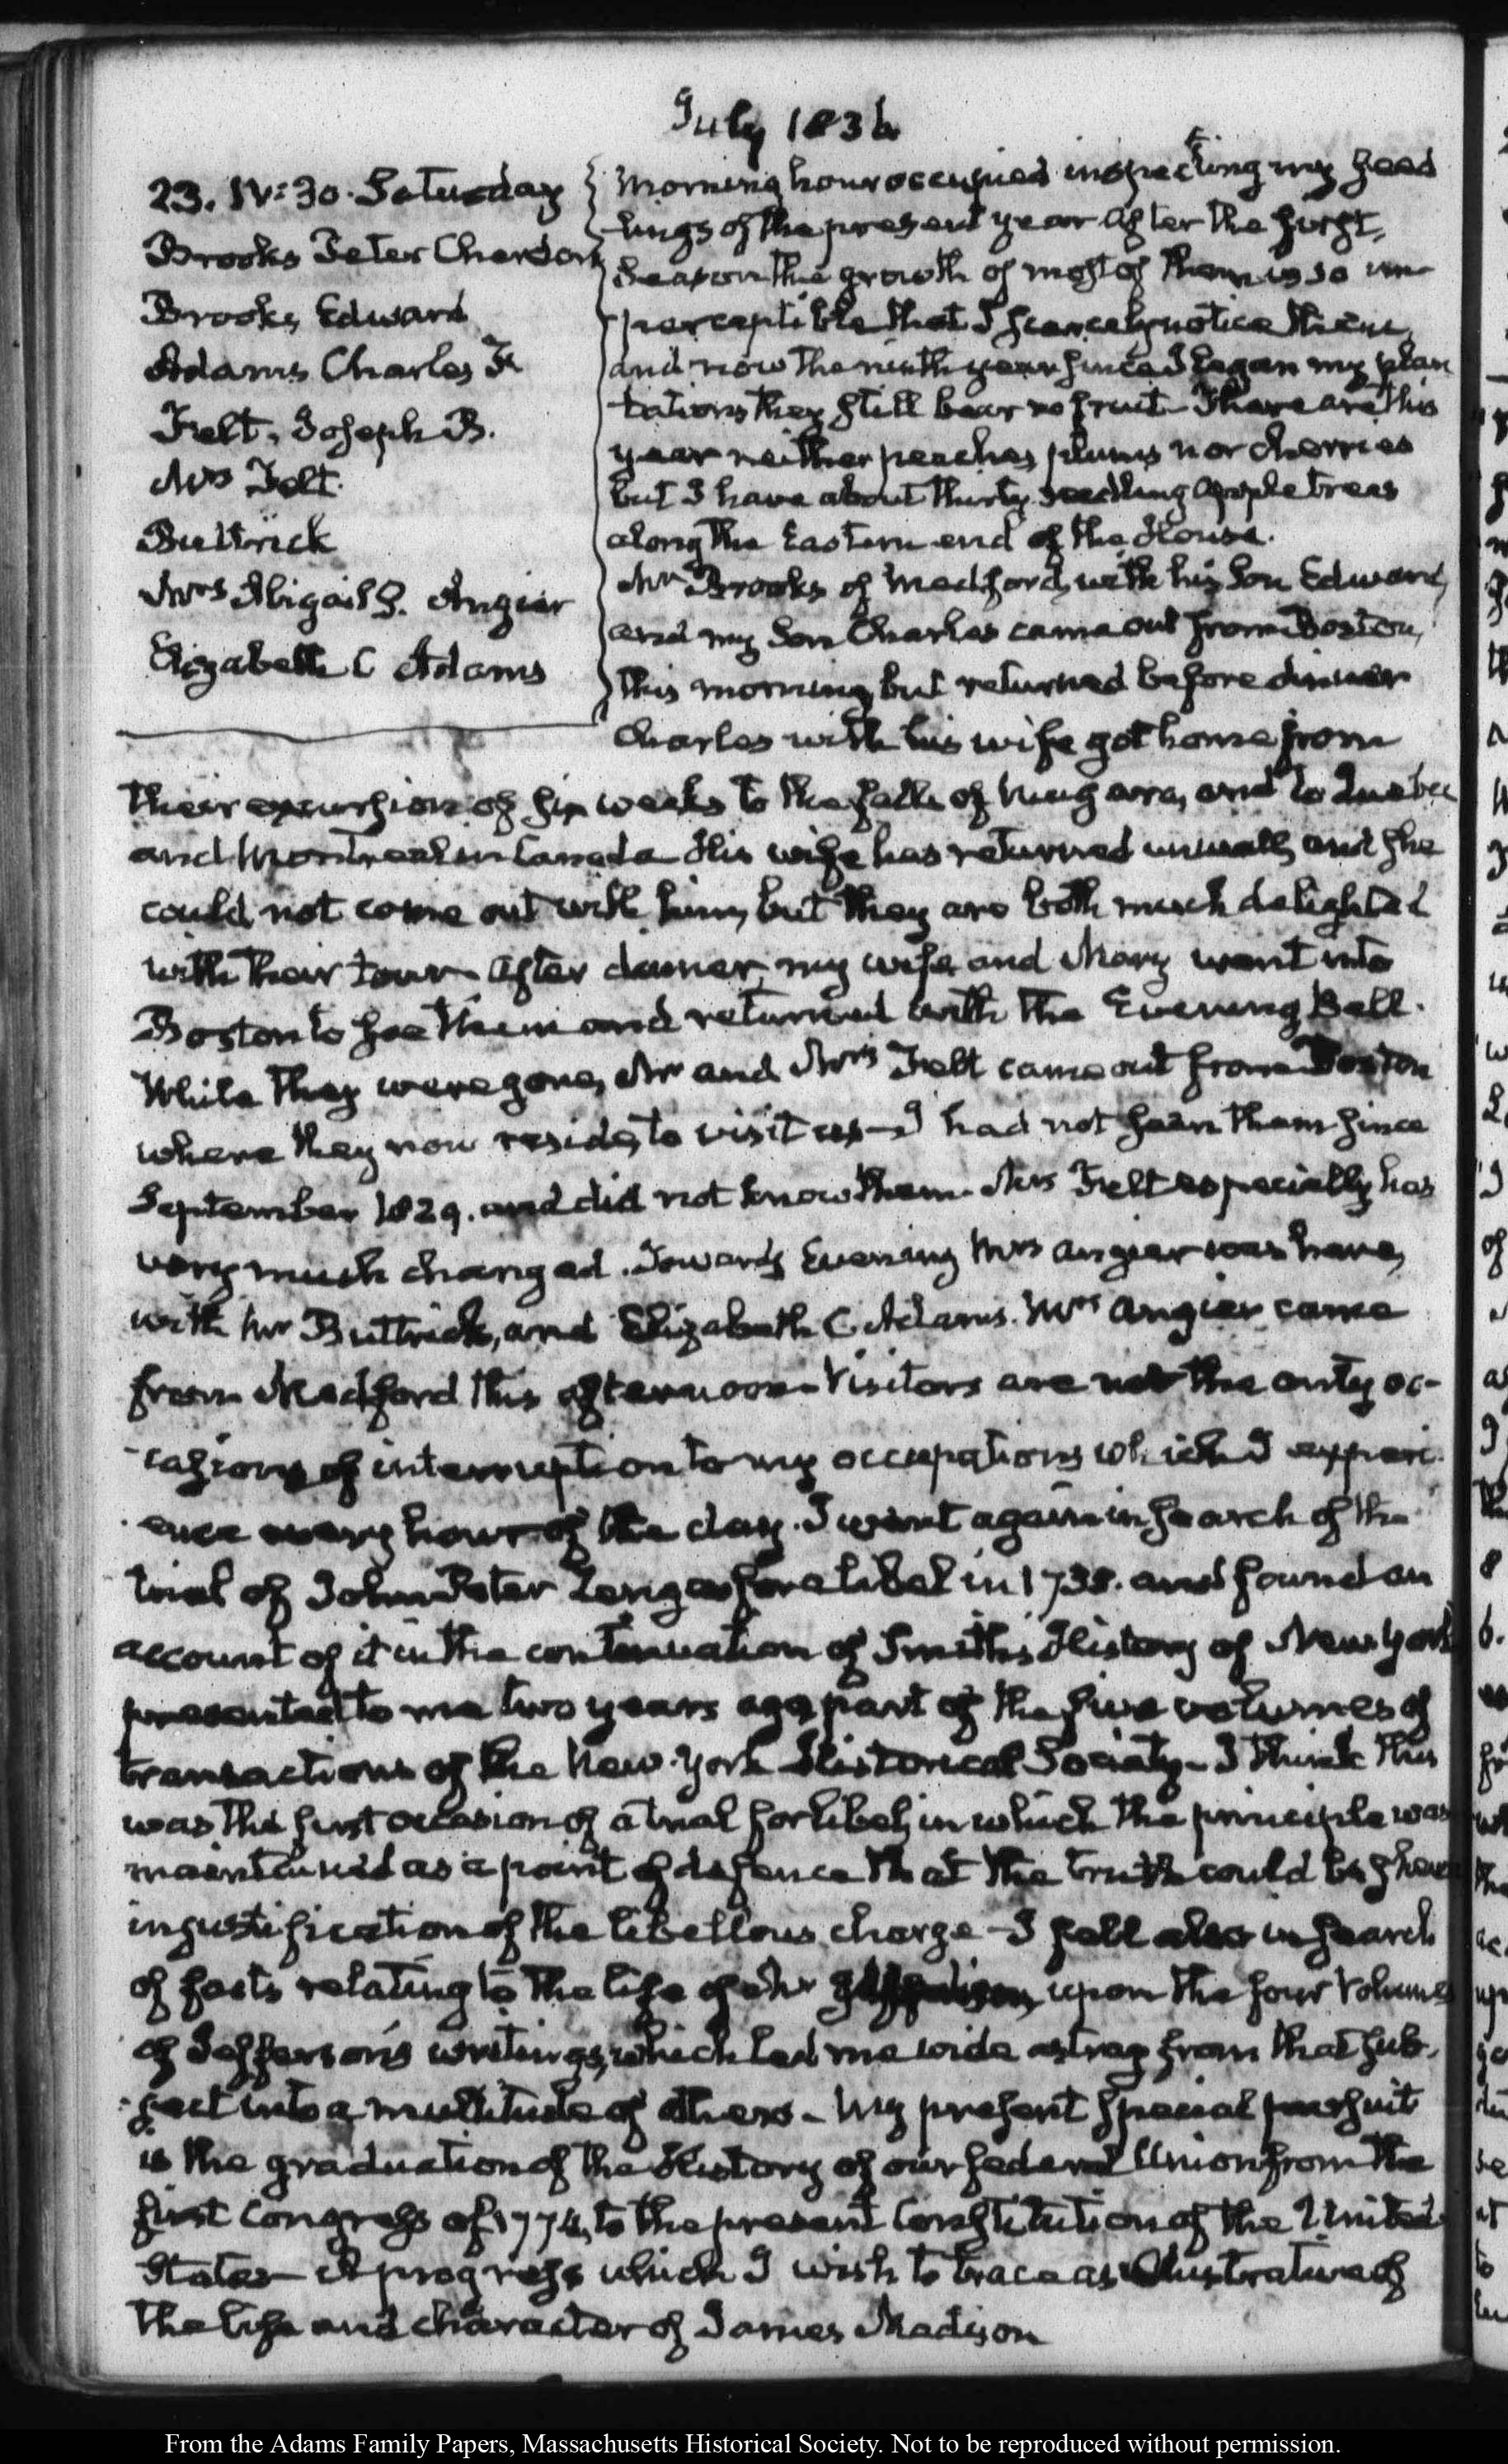 July 1836
23. IV:30. Saturday
Brooks Peter Chardon
Brooks, Edward
Adams Charles F.
Felt, Joseph B.
Mrs Felt.
Buttrick
Mrs Abigail S. Angier
Elizabeth C Adams
Morning hour occupied inspecting my seed
lings of the present year after the first
season the growth of most of them is so im-
perceptible that I scarcely notice them,
and now the ninth year since I began my plan
tations they still bear no fruit. There are this
year neither peaches, plums nor cherries
but I have about thirty seedling apple trees
along the Eastern end of the House.
Mr Brooks of Medford, with his Son Edward,
and my Son Charles came out from Boston,
this morning but returned before dinner
Charles with his wife got home from
their excursion of six weeks to the falls of Niagara, and to Quebec
and Montreal in Canada. His wife has returned unwell, and she
could not come out with him, but they are both much delighted
with their tour. After dinner, my wife and Mary went into
Boston to see them and returned with the Evening Bell.
While they were gone, Mr and Mrs Felt came out from Boston
where they now reside, to visit us—I had not seen them since
September 1829. and did not know them. Mrs Felt especially has
very much changed. Towards Evening Mrs Angier was here,
with Mr Buttrick, and Elizabeth C. Adams. Mrs Angier came
from Medford this afternoon—Visitors are not the only oc-
casions of interruption to my occupations which I experi-
ence every hour of the day. I went again in search of the
trial of John Peter Zenger for a libel in 1735. and found an
account of it in the continuation of Smith's History of New York
presented to me two years ago part of the five volumes of
transactions of the New-York Historical Society—I think this
was the first occasion of a trial for libel, in which the principle was
maintained as a point of defence that the truth could be given
in justification of the libellous charge—I fell also in search
of facts relating to the life of Mr upon the four Volumes
of Jefferson's writings, which led me wide astray from that sub-
ject into a multitude of others—My present special pursuit
is the graduation of the History of our federal Union from the
first Congress of 1774, to the present Constitution of the United
States—A progress which I wish to trace as illustrative of
the life and character of James Madison
From the Adams Family Papers, Massachusetts Historical Society. Not to be reproduced without permission.